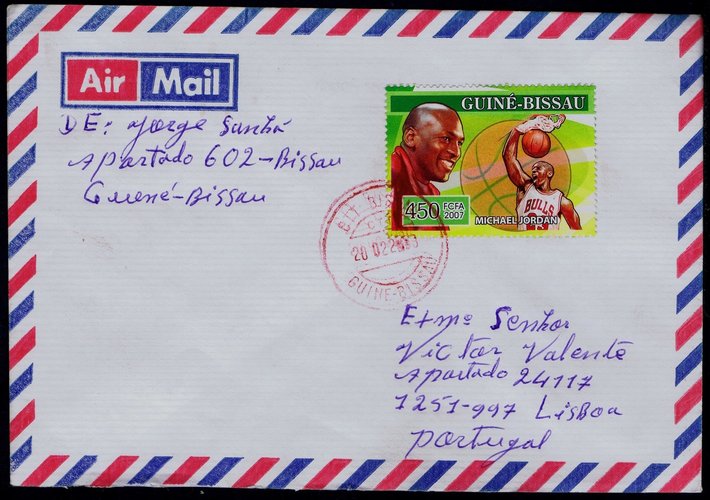 Air Mail
DE: Jorge Sanhá
Apartado 602-Bissau
Guené-Bissau
GUINÉ-BISSAU
450 FCFA
2007
MICHAEL JORDAN
BULLS
GUINE-BISSAU
Exmº Senhor
Victor Valente
Apartado 24117
1251-997 Lisboa
Portugal